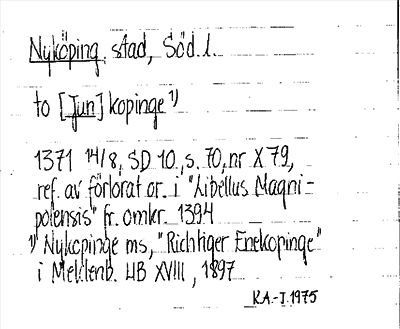 Nyköping, stad, Söd. l.
to [Jun] kopinge 1)
1371 14/8, SD 10, s. 70, nr X 79,
ref. av förlorat or. i "Libellus Magni-
polensis" fr. omkr. 1394
1) Nykopinge ms, "Richtiger Enekopinge"
i Meklenb. UB XVIII, 1897
K.A.-J. 1975